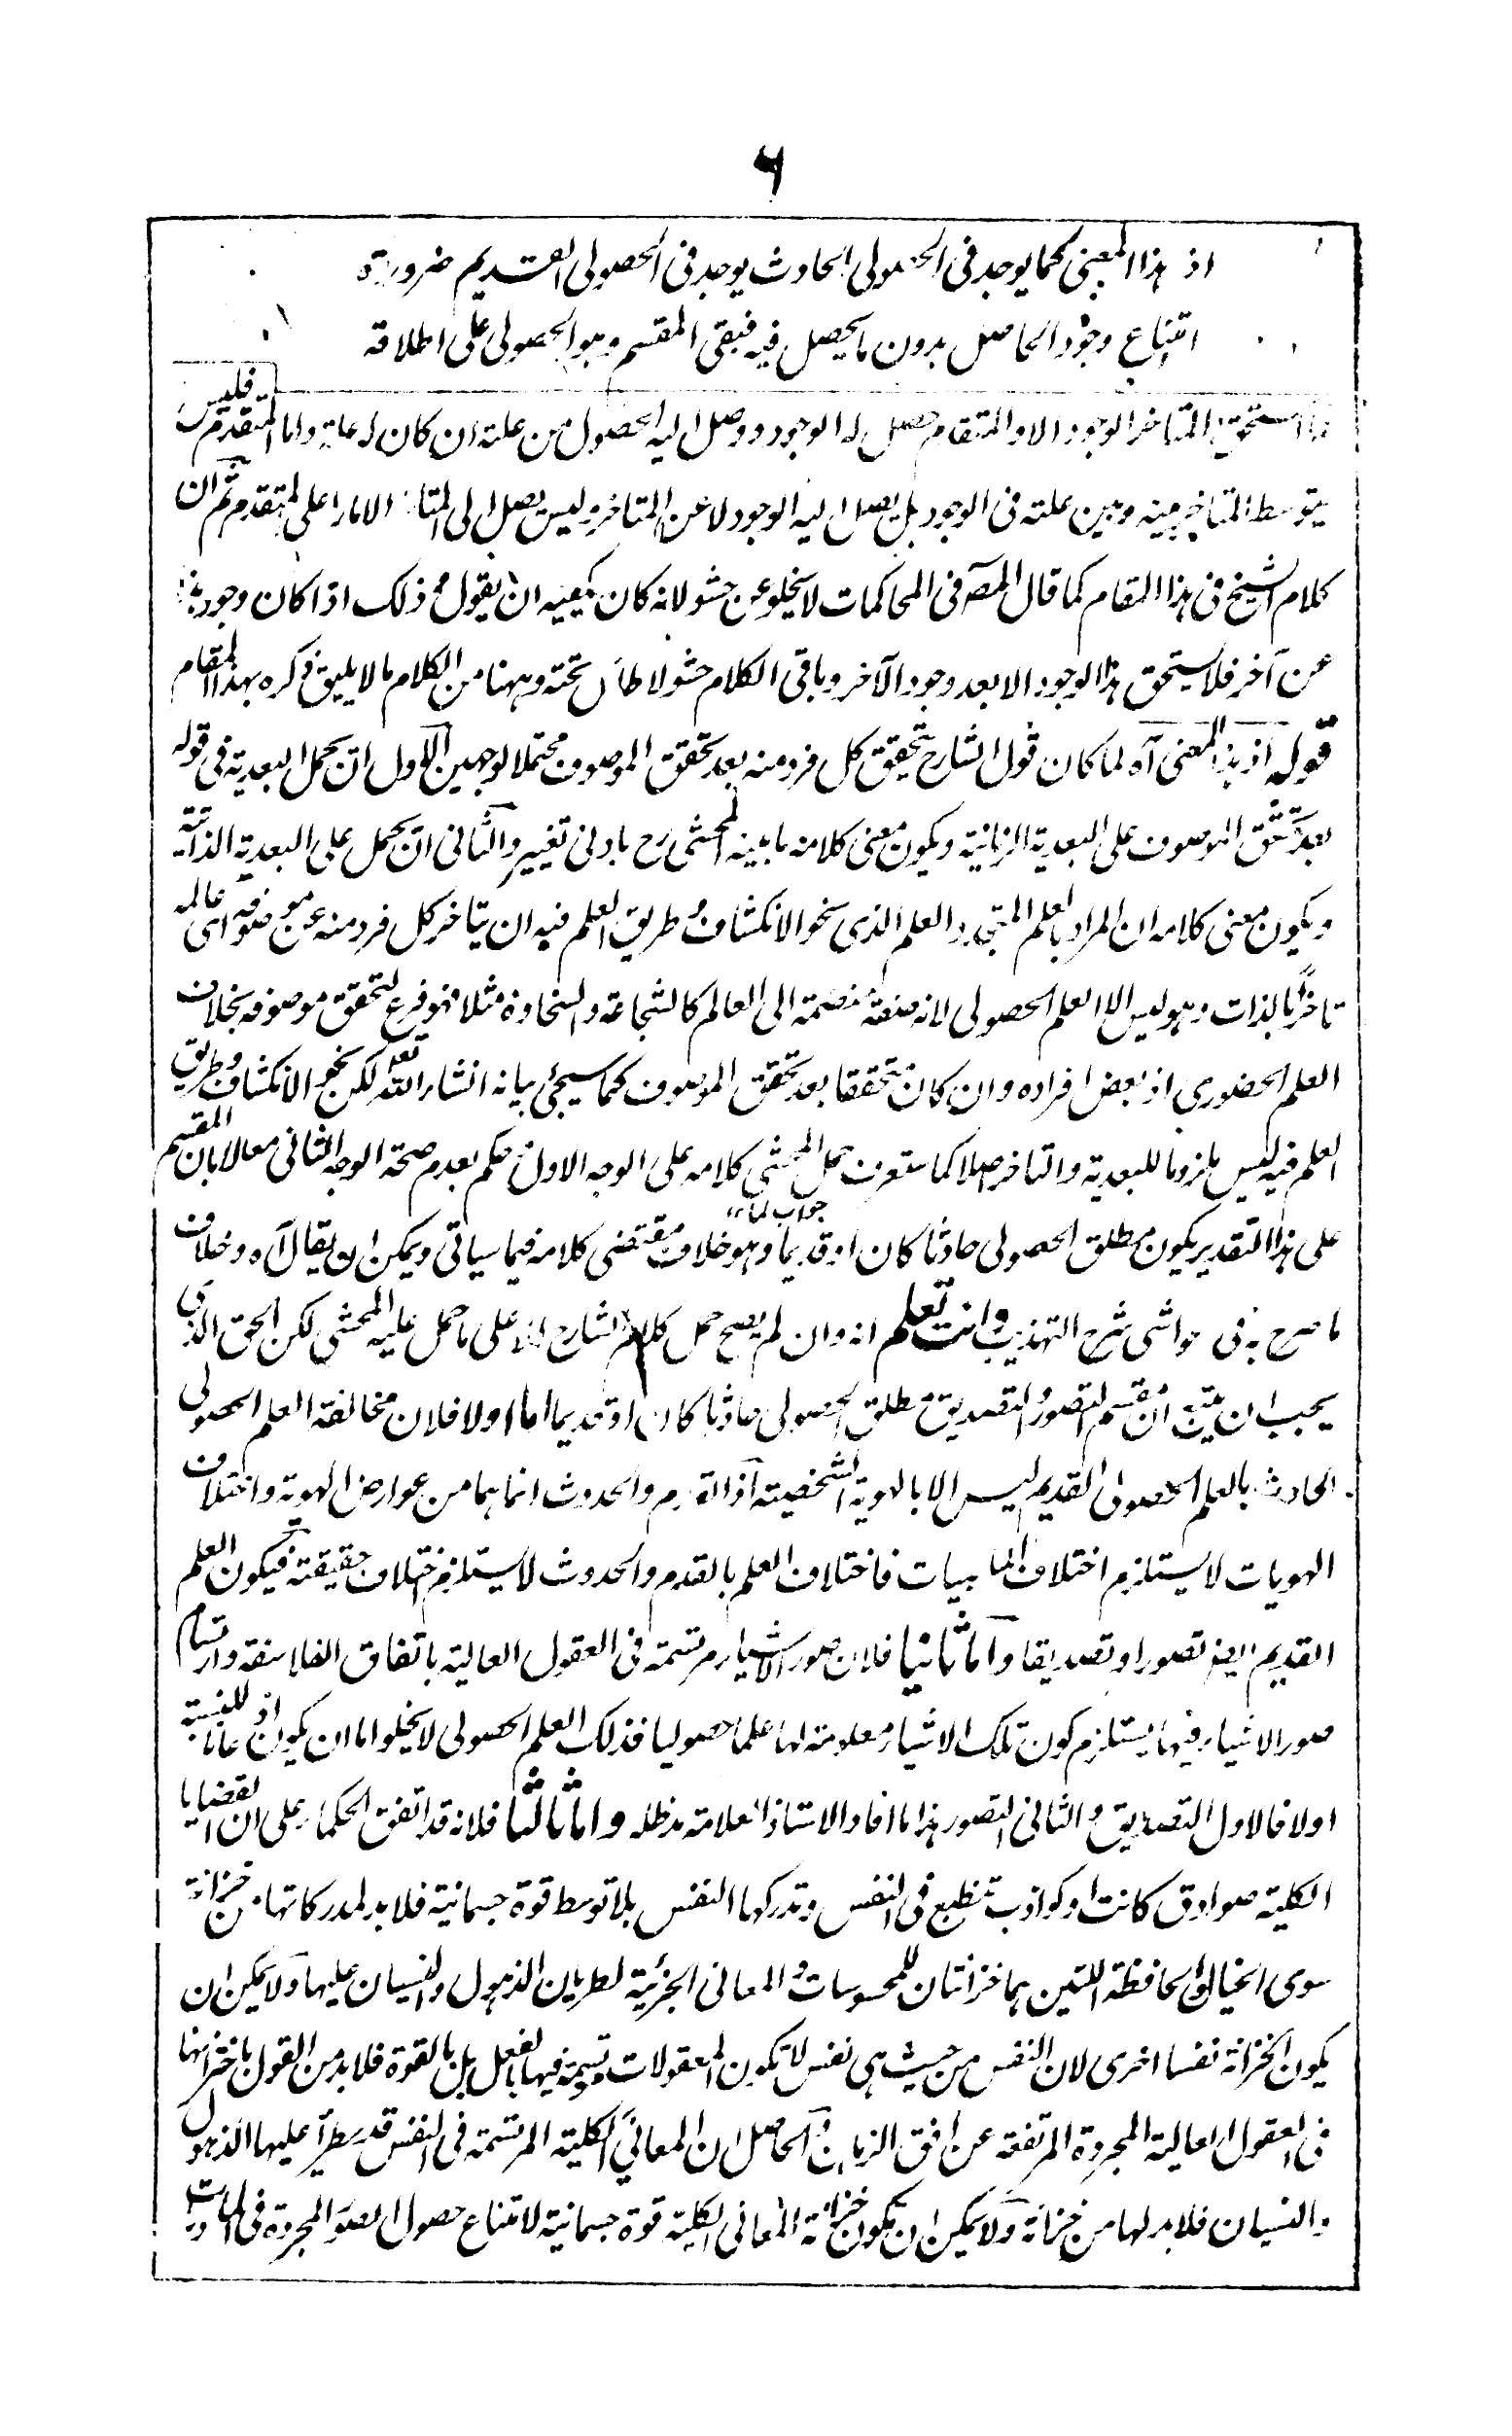 ٦
اذ هذا المعنى كما يوجد فى الحصولى الحادث يوجد فى الحصولى القديم ضرورة
امتناع وجود الحاصل بدون ما يحصل فيه فبقى المقسم وهو الحصولى على اطلاقه
استحق المتاخر الوجود الا والمتقدم حصل له الوجود ووصل اليه الحصول من علته ان كان له علة واما المتقدم فليس
يتوسط المتاخر بينه وبين علته فى الوجود بل يصل اليه الوجود لا عن المتاخر وليس يصل الى المتاخر الا مارا على المتقدم ثم ان
كلام الشيخ فى هذا المقام كما قال المصـ فى المحاكمات لا يخلو عن حشو لانه كان يكفيه ان يقول مع ذلك اذا كان وجود هذا
عن آخر فلا يستحق هذا الوجود الا بعد وجود الآخر وباقى الكلام حشو لا طائل تحته وههنا من الكلام ما لا يليق ذكره بهذا المقام
قوله اذ هذا المعنى آه لما كان قول الشارح يتحقق كل فرد منه بعد تحقق الموصوف محتملا لوجهين الاول ان يحمل البعدية فى قوله
بعد تحقق الموصوف على البعدية الزمانية ويكون معنى كلامه ما بينه المحشى رح بادنى تغيير والثانى ان يحمل على البعدية الذاتية
ويكون معنى كلامه ان المراد بالعلم المتجدد العلم الذى نحو الانكشاف وطريق العلم فيه ان يتاخر كل فرد منه عن موصوفه اى عالمه
تاخرا بالذات وهو ليس الا العلم الحصولى لانه صفة منضمة الى العالم كالشجاعة والسخاوة مثلا فهو فرع لتحقق موصوفه بخلاف
العلم الحضورى اذ بعض افراده وان كان متحققا بعد تحقق الموصوف كما سيجئ بيانه انشاء الله تعالى لكن نحو الانكشاف وطريق
العلم فيه ليس ملزوما للبعدية والتاخر اصلا كما ستعرف حمل المحشى كلامه على الوجه الاول حكم بعدم صحة الوجه الثانى معللا بان المقسم
جواب لما
على هذا التقدير يكون مطلق الحصولى حادثا كان او قديما وهو خلاف مقتضى كلامه فيما سياتى ويمكن ان يقال آه وخلاف
ما صرح به فى حواشى شرح التهذيب وانت تعلم انه وان لم يصح حمل كلام الشارح الا على ما حمل عليه المحشى لكن الحق الذى
يجب ان يتبع ان مقسم التصور والتصديق مطلق الحصولى حادثا كان او قديما اما اولا فلان مخالفة العلم الحصولى
الحادث بالعلم الحصولى القديم ليس الا بالهوية الشخصية اذ القدم والحدوث انما هما من عوارض الهوية واختلاف
الهويات لا يستلزم اختلاف الماهيات فاختلاف العلم بالقدم والحدوث لا يستلزم اختلاف حقيقته فيكون العلم
القديم ايضا تصورا وتصديقا واما ثانيا فلان صور الاشياء مرتسمة فى العقول العالية باتفاق الفلاسفة وارتسام
صور الاشياء فيها يستلزم كون تلك الاشياء معلومة لها علما حصوليا فذلك العلم الحصولى لا يخلو اما ان يكون اذعانا للنسبة
اولا فالاول التصديق والثانى التصور هذا ما افاد الاستاذ العلامة مدظله واما ثالثا فلانه قد اتفق الحكماء على ان القضايا
الكلية صوادق كانت او كواذب تنطبع فى النفس وتدركها النفس بلا توسط قوة جسمانية فلا بد لمدركاتها من خزانة
سوى الخيال والحافظة اللتين هما خزانتان للمحسوسات والمعانى الجزئية لطريان الذهول والنسيان عليها ولا يمكن ان
يكون الخزانة نفسا اخرى لان النفس من حيث هى نفس لا تكون المعقولات مرتسمة فيها بالفعل بل بالقوة فلا بد من القول باختزانها
فى العقول العالية المجردة المرتفعة عن افق الزمان والحاصل ان المعانى الكلية المرتسمة فى النفس قد يطرأ عليها الذهول
والنسيان فلا بد لها من خزانة ولا يمكن ان تكون خزانة المعانى الكلية قوة جسمانية لامتناع حصول الصور المجردة فى الماديات